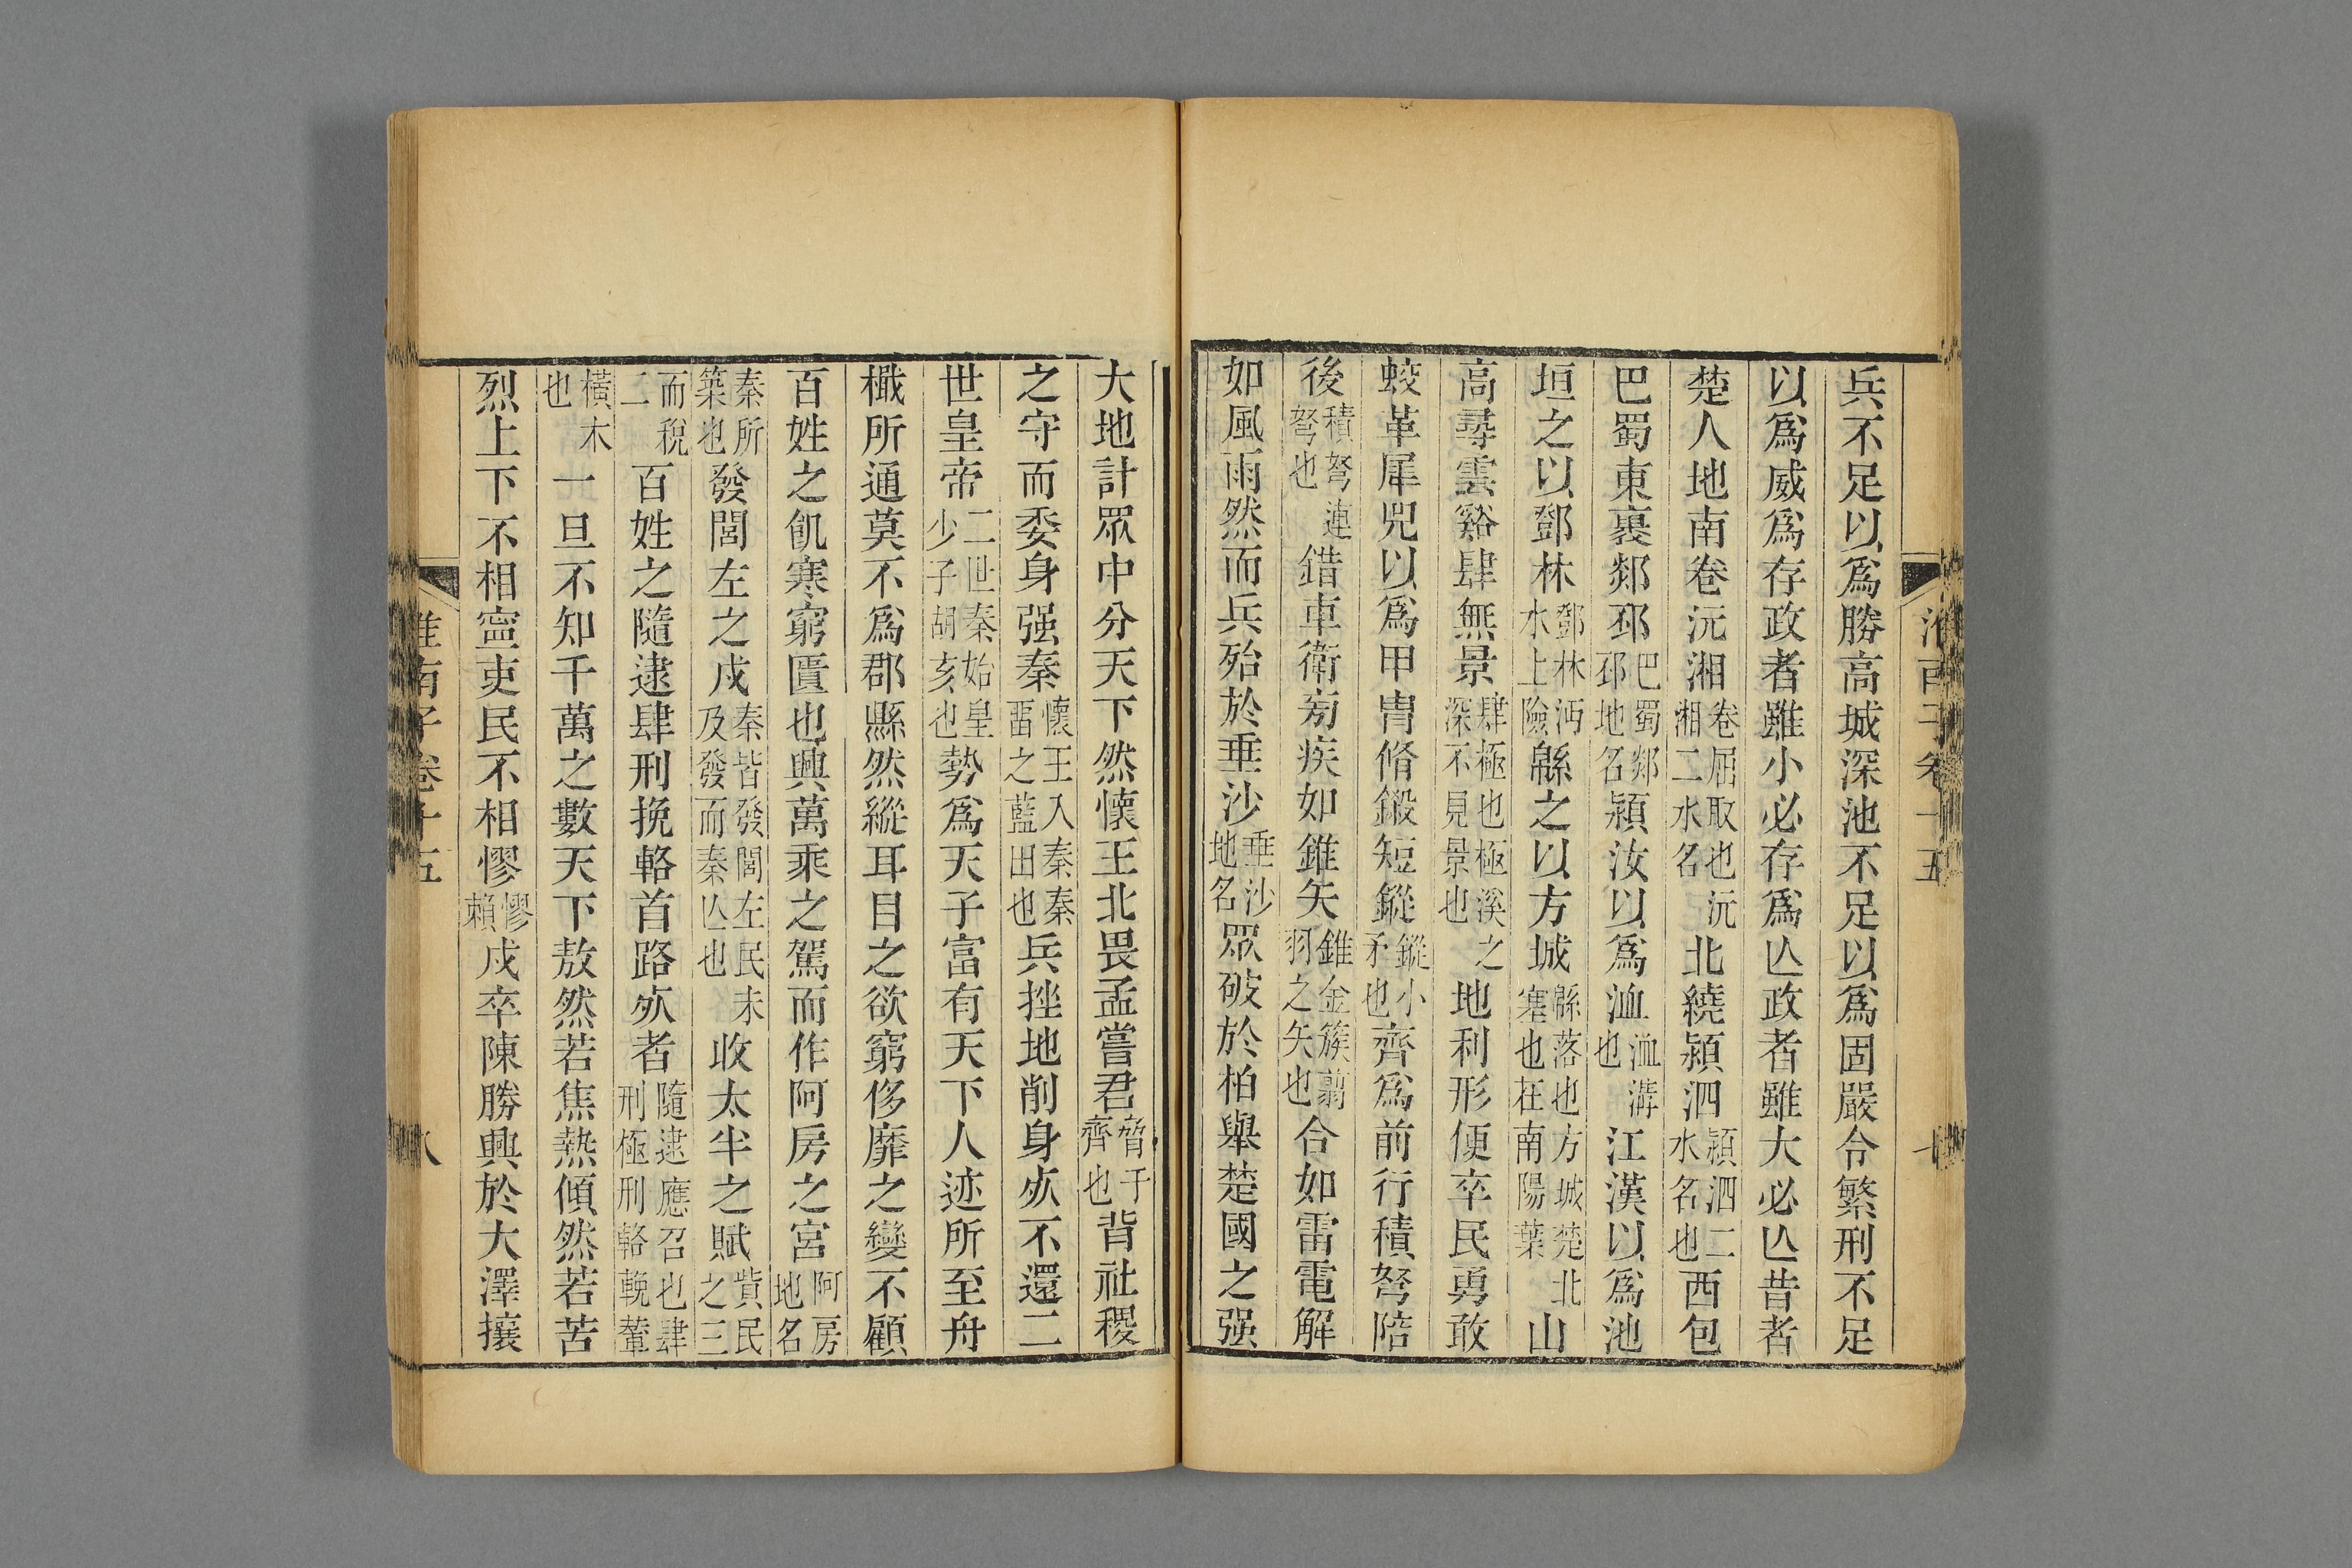 兵不足以爲勝高城深池不足以爲固嚴令繁刑不足
以爲威爲存政者雖小必存爲亾政者雖大必亾昔者
楚人地南卷沅湘卷屈取也沅湘二水名北繞潁泗潁泗二水名也西包
巴蜀東裹郯邳巴蜀郯邳地名潁汝以爲洫洫溝也江漢以爲池
垣之以鄧林鄧林沔水上險緜之以方城緜落也方城楚北塞也在南陽葉山
高尋雲谿肆無景肆極也極溪之深不見景也地利形便卒民勇敢
蛟革犀兕以爲甲冑脩鍛短鏦鏦小矛也齊爲前行積弩陪
後積弩連弩也錯車衛㫄疾如錐矢錐金簇翦羽之矢也合如雷電解
如風雨然而兵殆於垂沙垂沙地名眾破於柏舉楚國之强
大地計眾中分天下然懷王北畏孟嘗君背社稷
之守而委身强秦懷王入秦秦畱之藍田也兵挫地削身㱙不還二
世皇帝二世秦始皇少子胡亥也勢爲天子富有天下人迹所至舟
檝所通莫不爲郡縣然縱耳目之欲窮侈靡之變不顧
百姓之飢寒窮匱也興萬乘之駕而作阿房之宮阿房地名
秦所築也發閭左之戍秦皆發閭左民未及發而秦亾也收太半之賦貲民之三
而稅二百姓之隨逮肆刑挽輅首路㱙者隨逮應召也肆刑極刑輅輓輦
橫木也一旦不知千萬之數天下敖然若焦熱傾然若苦
烈上下不相寍吏民不相憀憀賴戍卒陳勝興於大澤攘
淮南子卷十五
八